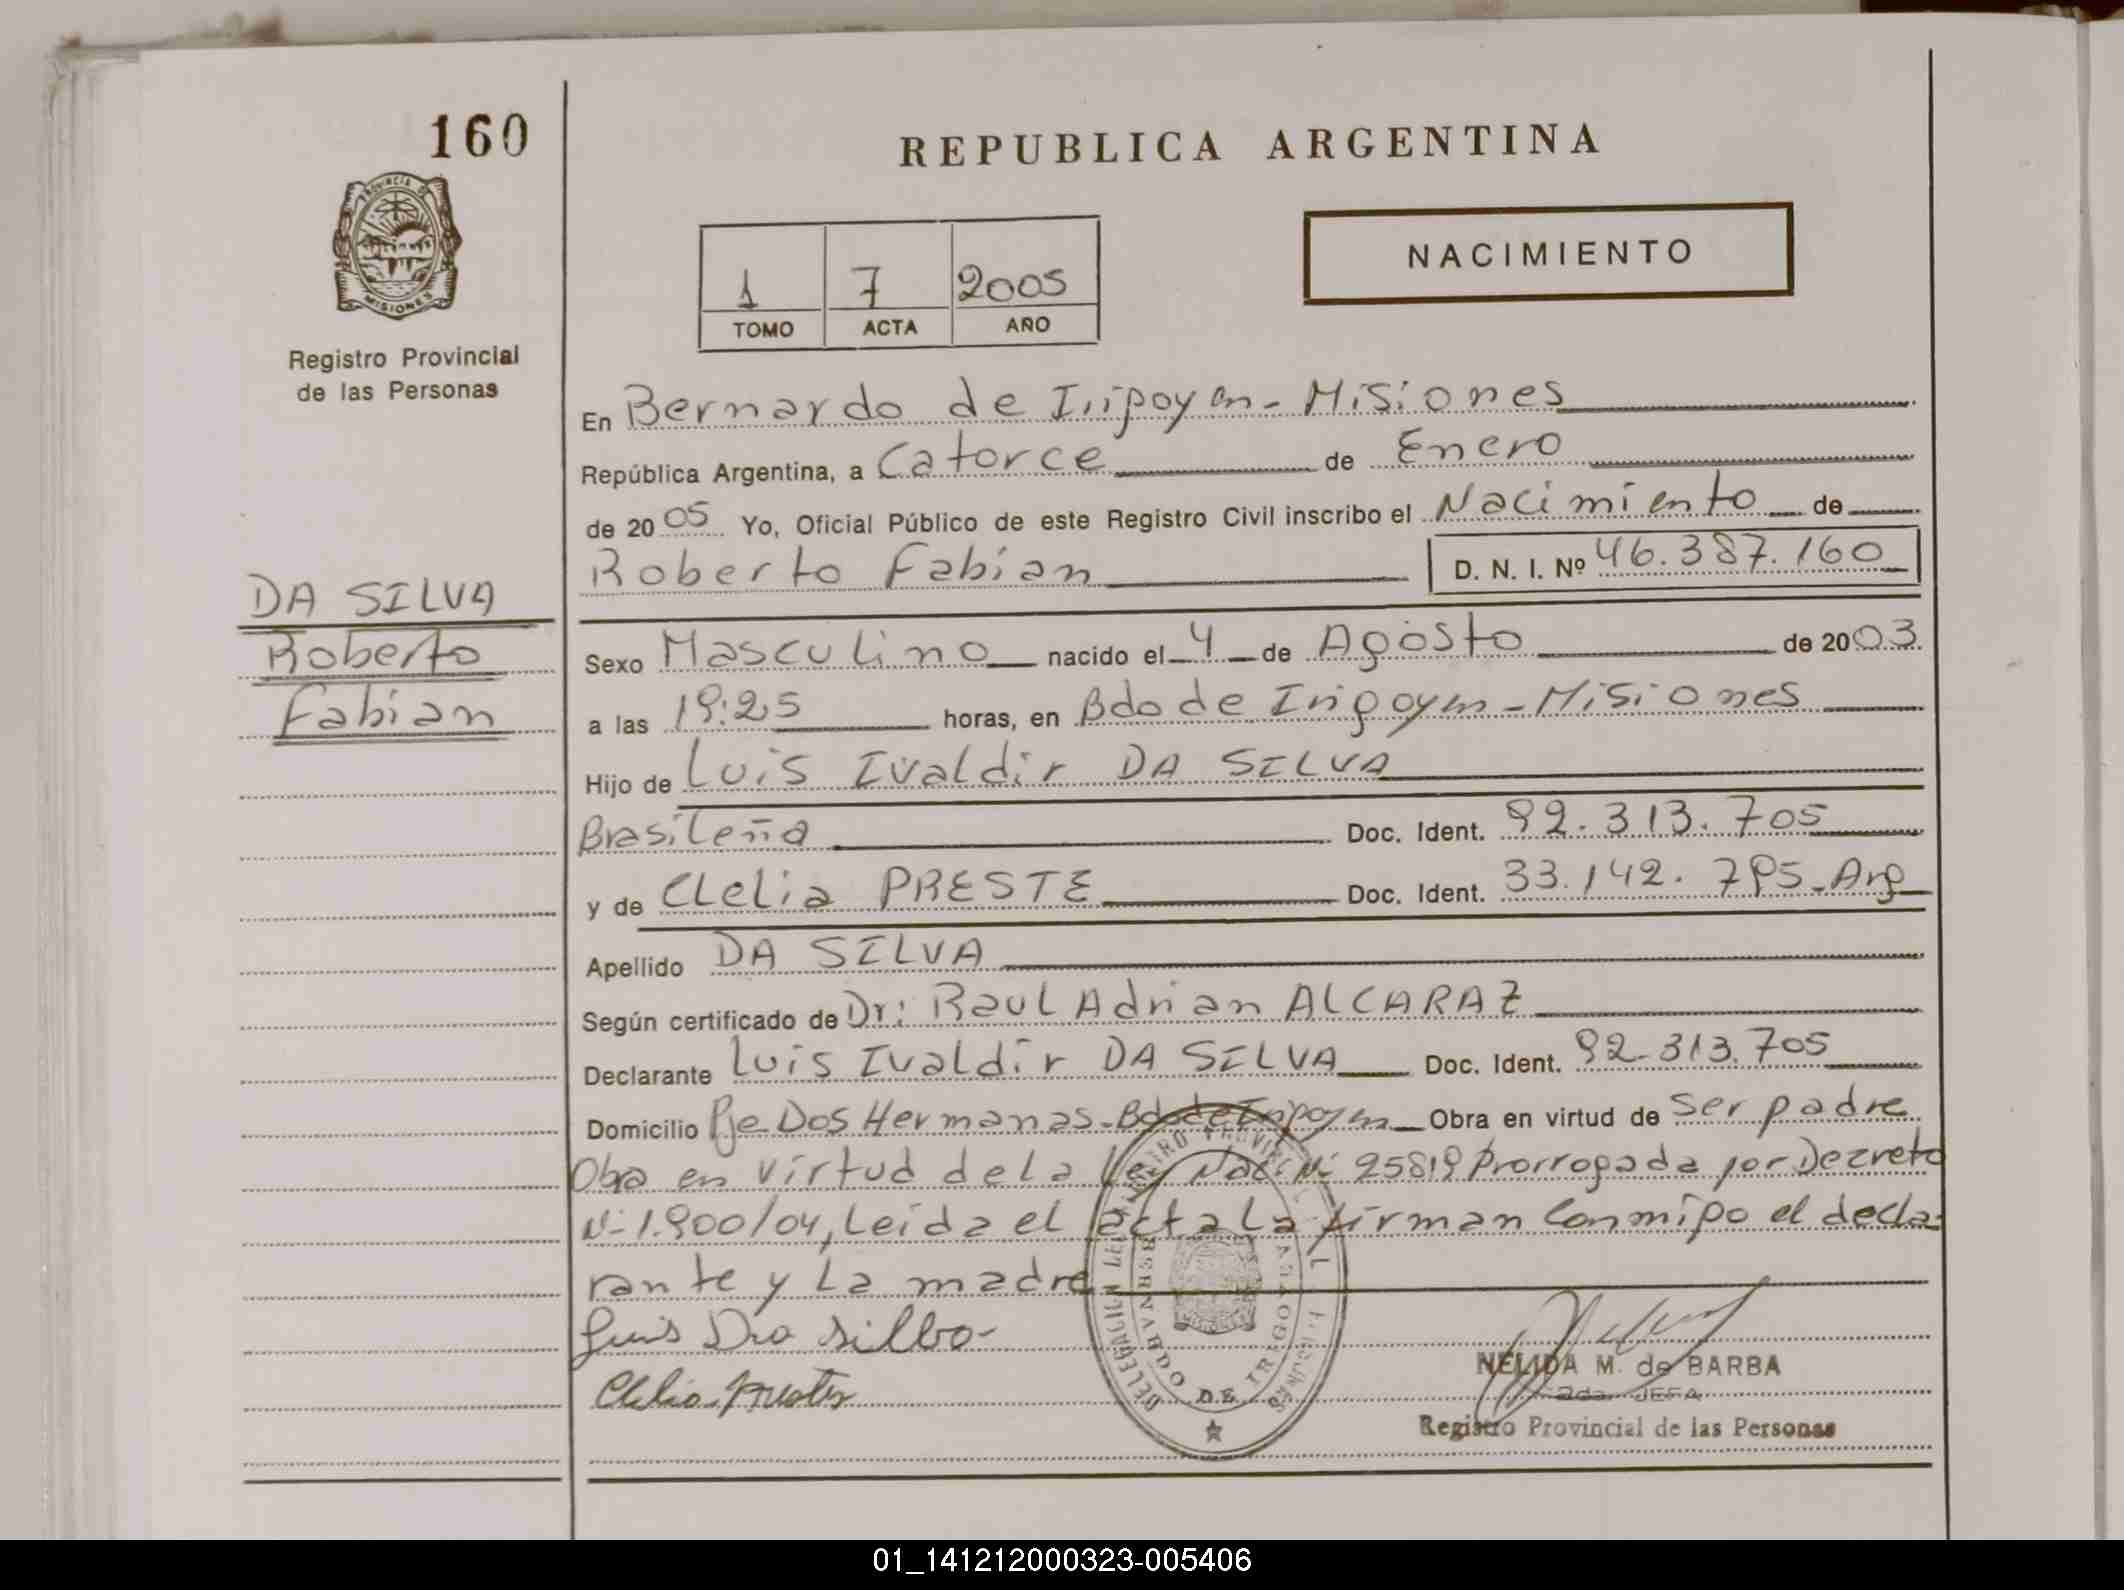 160
PROVINCIA DE
MISIONES
Registro Provincial
de las Personas
DA SILVA
Roberto
Fabian
REPUBLICA ARGENTINA
NACIMIENTO
1 7 2005
TOMO ACTA AÑO
En Bernardo de Irigoyen - Misiones
República Argentina, a Catorce de Enero
de 2005 Yo, Oficial Público de este Registro Civil inscribo el Nacimiento de
Roberto Fabian D. N. I. Nº 46.387.160
Sexo Masculino nacido el 4 de Agosto de 2003.
a las 19:25 horas, en Bdo de Irigoyen - Misiones
Hijo de Luis Ivaldir DA SILVA
Brasileña Doc. Ident. 92.313.705
y de Clelia PRESTE Doc. Ident. 33.142.795 - Arg
Apellido DA SILVA
Según certificado de Dr: Raul Adrian ALCARAZ
Declarante Luis Ivaldir DA SILVA Doc. Ident. 92.313.705
Domicilio Pje Dos Hermanas - Bdo de Irigoyen Obra en virtud de ser padre
Obra en virtud de la Ley Nac. Nº 25819 Prorrogada por Decreto
Nº 1.900/04, Leida el acta La firman Conmigo el decla-
rante y La madre
Luis Da Silba
Clelia Preste
DELEGACION
BERNARDO DE IRIGOYEN
NELIDA M. de BARBA
2da. JEFA
Registro Provincial de las Personas
01_141212000323-005406